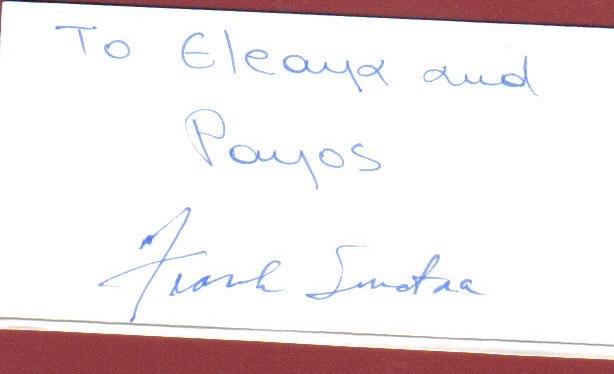 To Eleaya and
Payos
Frank Sinatra